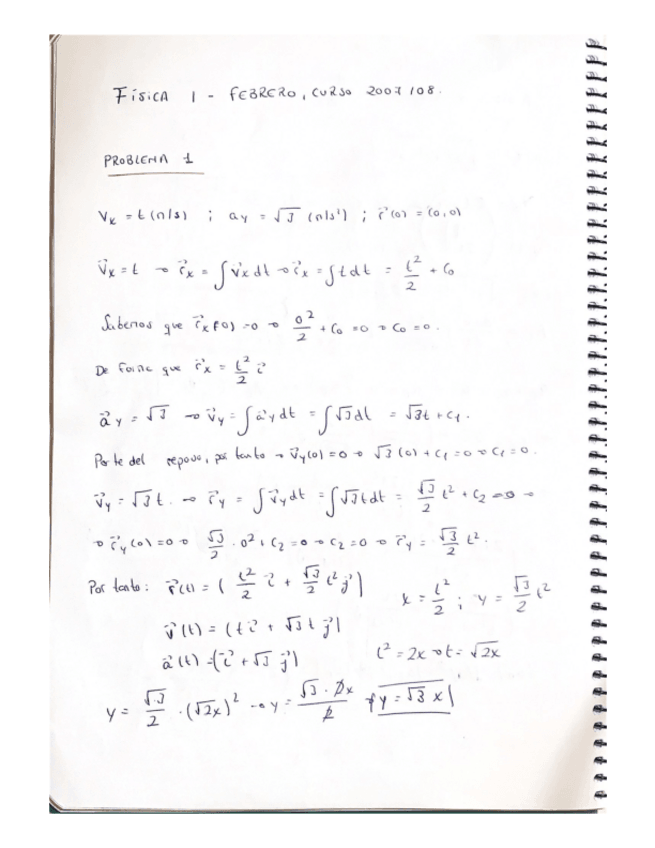 FÍSICA 1 - FEBRERO, CURSO 2007/08.
PROBLEMA 1
Vx = t (m/s) ; ay = √3 (m/s²) ; r⃗(0) = (0,0)
v⃗x = t → r⃗x = ∫ v⃗x dt → r⃗x = ∫ t dt = t²/2 + C₀
Sabemos que r⃗x(0) = 0 → 0²/2 + C₀ = 0 → C₀ = 0.
De forma que r⃗x = t²/2 i⃗
a⃗y = √3 → v⃗y = ∫ a⃗y dt = ∫ √3 dt = √3 t + C₁.
Parte del reposo, por tanto → v⃗y(0) = 0 → √3 (0) + C₁ = 0 → C₁ = 0.
v⃗y = √3 t. → r⃗y = ∫ v⃗y dt = ∫ √3 t dt = √3/2 t² + C₂ = 0 →
→ r⃗y(0) = 0 → √3/2 · 0² + C₂ = 0 → C₂ = 0 → r⃗y = √3/2 t².
Por tanto: r⃗(t) = ( t²/2 i⃗ + √3/2 t² j⃗ ) x = t²/2 ; y = √3/2 t²
v⃗(t) = (t i⃗ + √3 t j⃗)
a⃗(t) = (i⃗ + √3 j⃗) t² = 2x → t = √2x
y = √3/2 · (√2x)² → y = √3 · 2x / 2 → y = √3 x